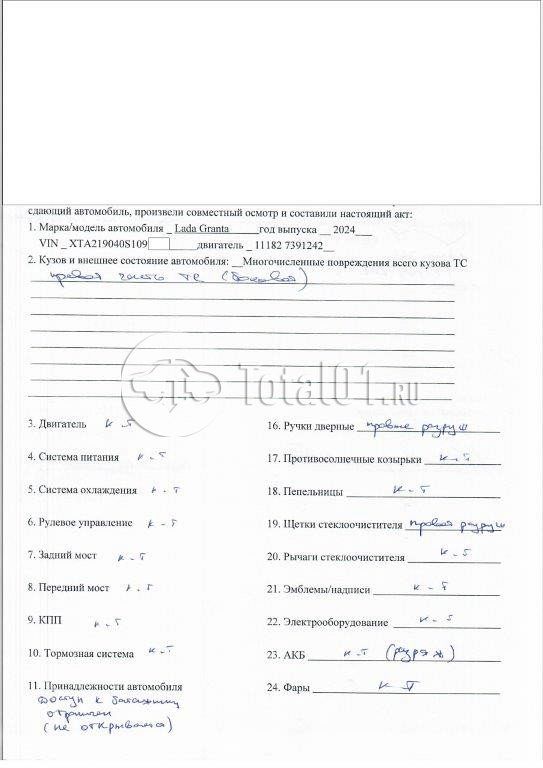 сдающий автомобиль, произвели совместный осмотр и составили настоящий акт:
1. Марка/модель автомобиля _ Lada Granta______год выпуска __ 2024___
VIN _ XTA219040S109 ______двигатель _ 11182 7391242__
2. Кузов и внешнее состояние автомобиля: __Многочисленные повреждения всего кузова ТС
правая часть ТС (боковая)
Total01.RU
3. Двигатель к-т
4. Система питания к-т
5. Система охлаждения к-т
6. Рулевое управление к-т
7. Задний мост к-т
8. Передний мост к-т
9. КПП к-т
10. Тормозная система к-т
11. Принадлежности автомобиля
Доступ к багажнику
ограничен
(не открывается)
16. Ручки дверные правые разруш
17. Противосолнечные козырьки к-т
18. Пепельницы к-т
19. Щетки стеклоочистителя правая разруш
20. Рычаги стеклоочистителя к-т
21. Эмблемы/надписи к-т
22. Электрооборудование к-т
23. АКБ к-т (разряж)
24. Фары к-т